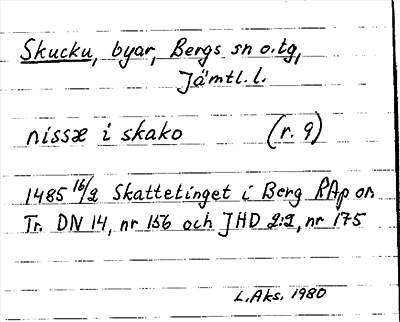 Skucku, byar, Bergs sn o. tg,
Jämtl. l.
nissæ i skako (r. 9)
1485 16/2 Skattetinget i Berg RAp or.
Tr. DN 14, nr 156 och JHD 2:2, nr 175
L. Aks. 1980